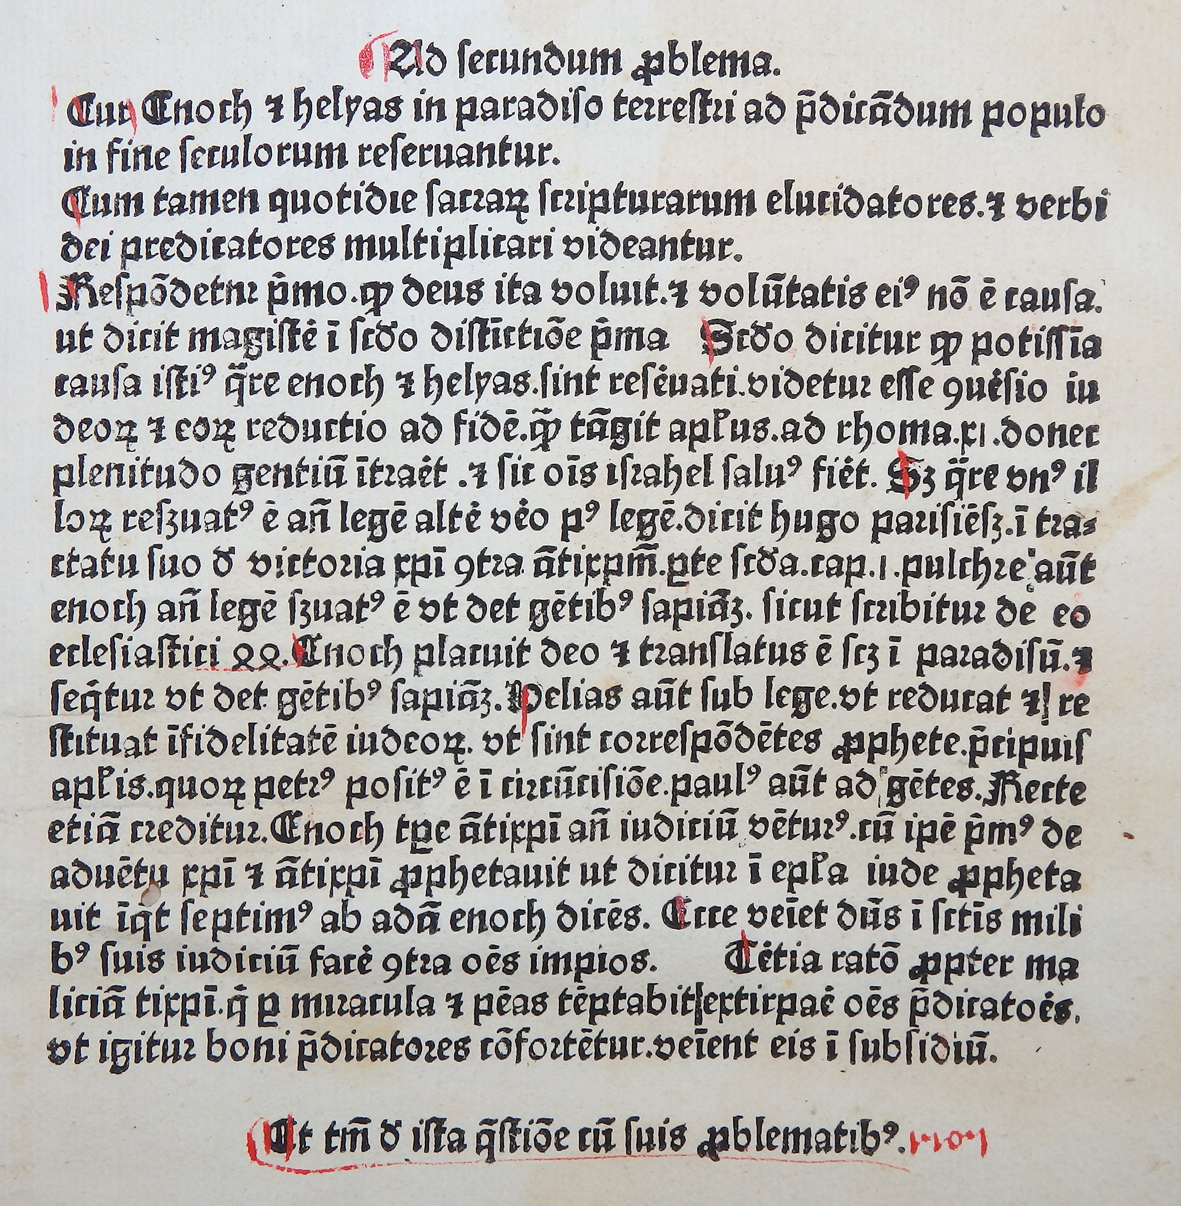 Ad secundum ꝓblema.
Cur Enoch ⁊ helyas in paradiso terrestri ad p̄dicādum populo
in fine seculorum reseruantur.
Cum tamen quotidie sacraꝝ scripturarum elucidatores.⁊ verbi
dei predicatores multiplicari videantur.
Respōdetur p̄mo.ꝙ deus ita voluit.⁊ volūtatis eiꝰ nō ē causa.
ut dicit magistē ī scd̄o distīctiōe p̄ma Scd̄o dicitur ꝙ potissīa
causa istiꝰ q̄re enoch ⁊ helyas.sint resēuati.videtur esse ꝯuēsio iu
deoꝝ ⁊ eoꝝ reductio ad fidē.ꝙ̄ tāgit apl̄us.ad rhoma.xı.donec
plenitudo gentiū ītraēt .⁊ sic oīs israhel saluꝰ fiēt. Sꝫ q̄re vnꝰ il
loꝝ resꝫuatꝰ ē an̄ legē altē vēo pꝰ legē.dicit hugo parisiēsꝫ.ī tra-
ctatu suo d̄ victoria xp̄i ꝯtra ātixpm̄.ꝑte scd̄a.cap.ı.pulchre aūt
enoch an̄ legē sꝫuatꝰ ē vt det gētibꝰ sapiāꝫ. sicut scribitur de eo
eclesiastici 44.Enoch placuit deo ⁊ translatus ē scꝫ ī paradisū.⁊
seq̄tur vt det gētibꝰ sapiāꝫ.Helias aūt sub lege.vt reducat ⁊ re
stituat īfidelitatē iudeoꝝ. vt sint correspōdētes ꝓphete.p̄cipuis
apl̄is.quoꝝ petrꝰ positꝰ ē ī circūcisiōe.paulꝰ aūt ad gētes.Recte
etiā creditur.Enoch tꝑe ātixpī an̄ iudiciū vēturꝰ.cū ipē p̄mꝰ de
aduētu xpī ⁊ ātixpī ꝓphetauit ut dicitur ī epl̄a iude ꝓpheta
uit īq̄t septimꝰ ab adā enoch dicēs. Ecce veīet dūs ī sctīs mili
bꝰ suis iudiciū facē ꝯtra oēs impios. Tētia ratō ꝓpter ma
liciā tixpī.q̄ ꝑ miracula ⁊ pēas tēptabit extirpaē oēs p̄dicatoēs.
vt igitur boni p̄dicatores cōfortētur.veīent eis ī subsidiū.
Et tm̄ d̄ ista q̄stiōe cū suis ꝓblematibꝰ.